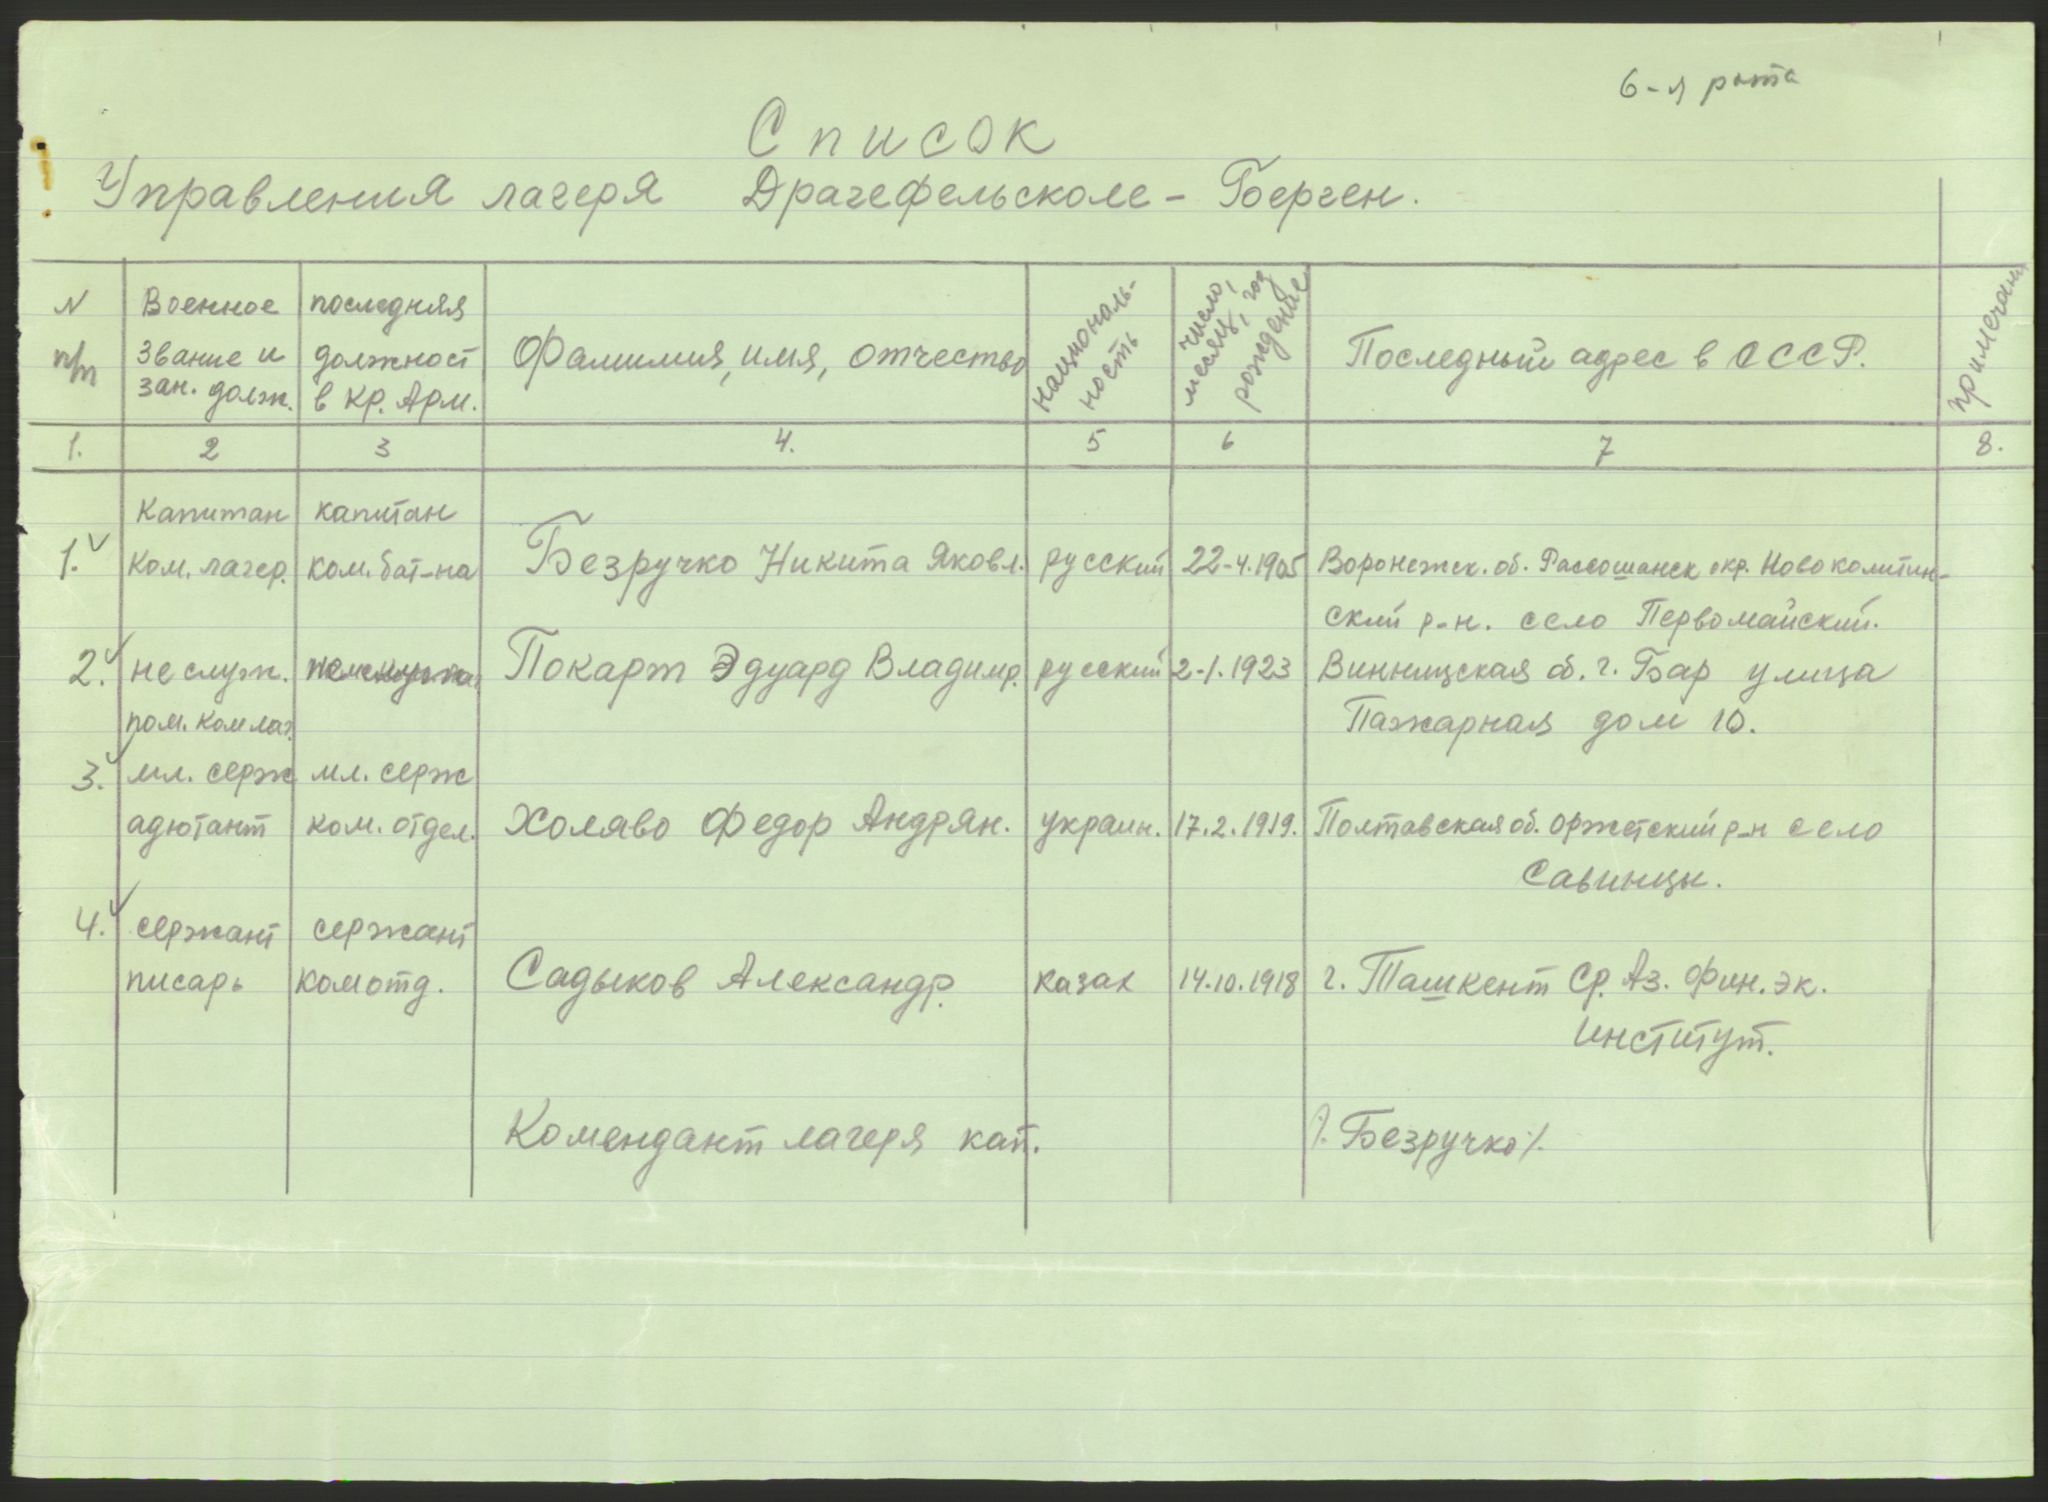 6-я рота
Список
Управления лагеря Драгефельсколе - Берген.
N п/п
Военное звание и зан. долж.
последняя должност в Кр. Арм.
Фамилия, имя, отчество
национальность
число, месяц, год рождение
Последный адрес в СССР.
примечани
1. 2 3 4. 5 6 7 8.
Капитан капитан
1. Ком. лагер. ком. бат-на Безручко Никита Яковл. русский 22-4.1905 Воронежск. об. Рассошанск окр. Новокалитин-
ский р-н. село Первомайский.
2. не служ. Покарж Эдуард Владимр. русский 2-1.1923 Винницская об. г. Бар улица
пом. ком лаг. Пажарная дом 10.
3. мл. серж мл. серж
адютант ком. отдел. Холяво Федор Андрян. украин. 17.2.1919. Полтавская об. Оржетский р-н село
Савинцы.
4. сержант сержант
писарь комотд. Садыков Александр. казах 14.10.1918 г. Ташкент Ср. Аз. Фин. эк.
Институт.
Комендант лагеря кап. /. Безручко /.